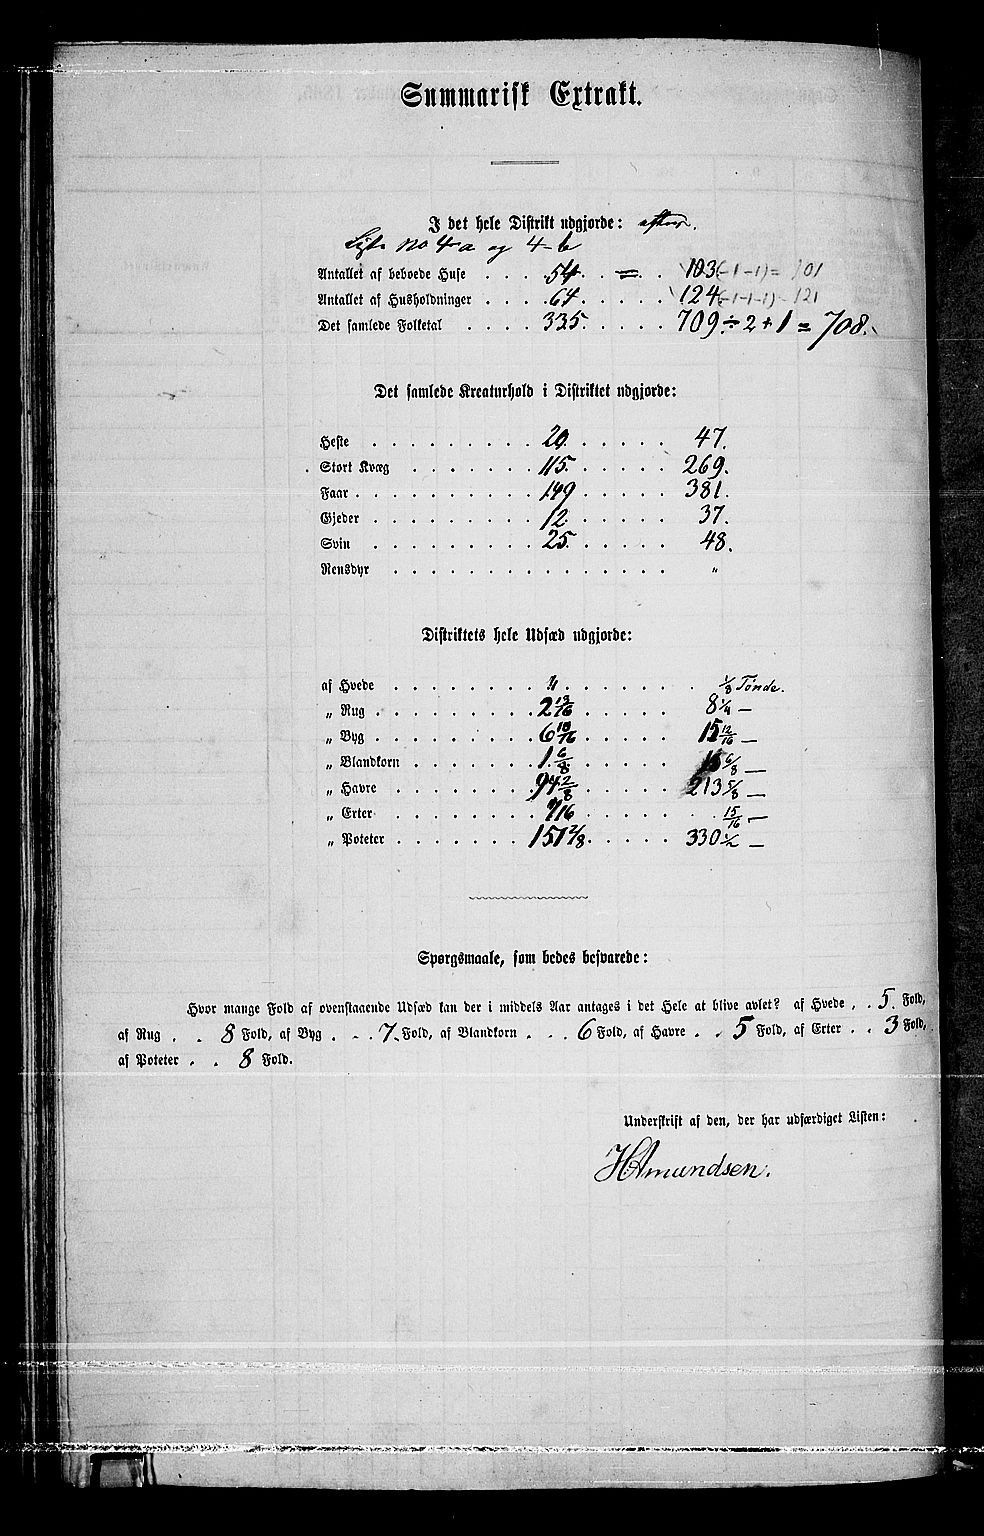 Summarisk Extrakt.
I det hele Distrikt udgjorde: efter
Liste no 4 a og 4 b
Antallet af beboede Huse . . . . 54 . . = . . 103 (-1-1) = 101
Antallet af Husholdninger . . . . 64 . . . . . 124 (-1-1-1) - 121
Det samlede Folketal . . . . 335 . . . . . 709 ÷ 2 + 1 = 708.
Det samlede Kreaturhold i Distriktet udgjorde:
Heste . . . . . . . 20 . . . . . 47.
Stort Kvæg . . . . . 115 . . . . . 269.
Faar . . . . . . . 149 . . . . . 381.
Gjeder . . . . . . . 12 . . . . . 37.
Svin . . . . . . . 25 . . . . . 48.
Rensdyr . . . . . . . . . . . . „
Distriktets hele Udsæd udgjorde:
af Hvede . . . . . . „ . . . . . . 1/8 Tønde.
„ Rug . . . . . . 2 13/16 . . . . . 8 1/4 —
„ Byg . . . . . . 6 10/16 . . . . . 15 12/16 —
„ Blandkorn . . . . . 1 6/8 . . . . . 6/8 —
„ Havre . . . . . . 94 2/8 . . . . . 213 5/8 —
„ Erter . . . . . . . . . . . 15/16 —
„ Poteter . . . . . . 151 2/8 . . . . . 330 1/2 —
Spørgsmaale, som bedes besvarede:
Hvor mange Fold af ovenstaaende Udsæd kan der i middels Aar antages i det Hele at blive avlet? af Hvede . . 5 . Fold,
af Rug . . 8 Fold, af Byg . . . 7. Fold, af Blandkorn . . . 6 Fold, af Havre . . 5 Fold, af Erter . . 3 Fold,
af Poteter . . 8 Fold.
Underskrift af den, der har udfærdiget Listen:
H Amundsen.